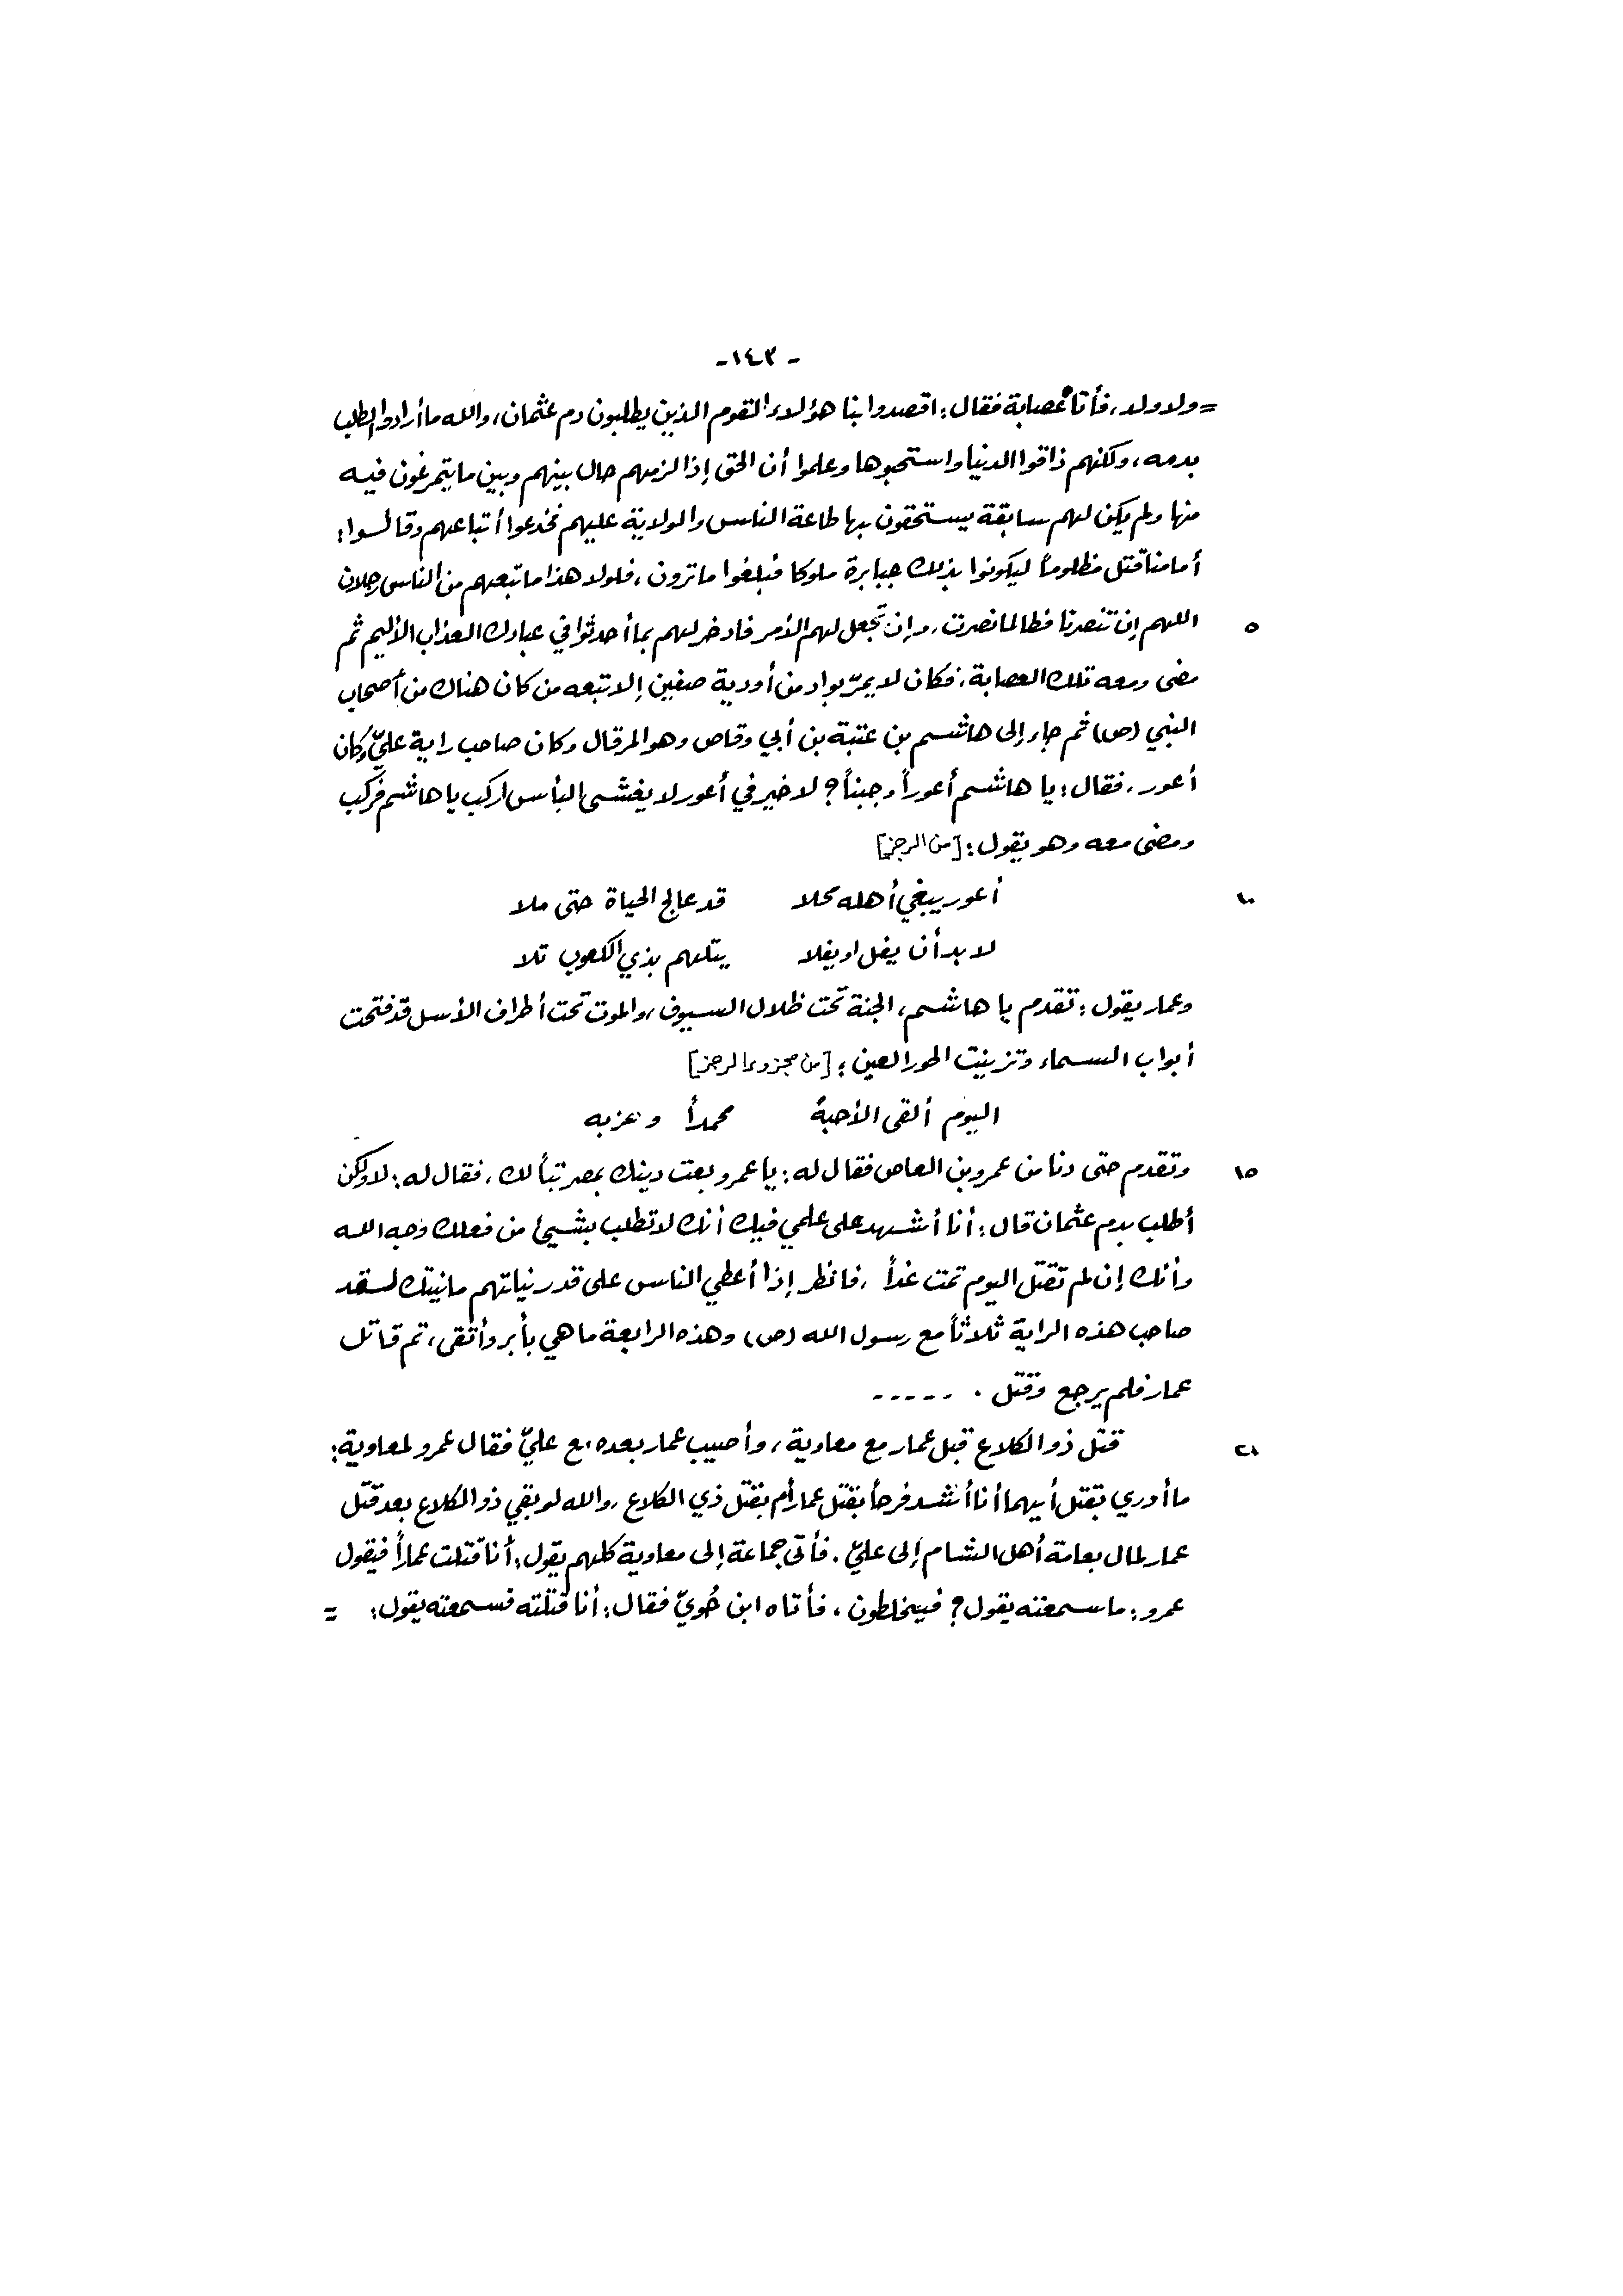 - ١٤٣ -
= ولا ولد، فأتاه عصابة فقال: اقصدوا بنا هؤلاء القوم الذين يطلبون دم عثمان، والله ما أرادوا الطلب
بدمه، ولكنهم ذاقوا الدنيا واستحبوها وعلموا أن الحق إذا لزمهم حال بينهم وبين ما يتمرغون فيه
منها ولم يكن لهم سابقة يستحقون بها طاعة الناس والولاية عليهم فخدعوا أتباعهم وقالوا:
أمامنا قتل مظلوماً ليكونوا بذلك جبابرة ملوكا فبلغوا ما ترون، فلولا هذا ما تبعهم من الناس رجلان
٥ اللهم إن تنصرنا فطالما نصرت، وإن تجعل لهم الأمر فادخر لهم بما أحدثوا في عبادك العذاب الأليم ثم
مضى ومعه تلك العصابة، فكان لا يمرّ بواد من أودية صفين إلا تبعه من كان هناك من أصحاب
النبي (ص) ثم جاء إلى هاشم بن عتبة بن أبي وقاص وهو المرقال وكان صاحب راية عليّ وكان
أعور، فقال: يا هاشم أعوراً وجبناً؟ لا خير في أعور لا يغشى البأس اركب يا هاشم فركب
ومضى معه وهو يقول: [من الرجز]
١٠ أعور يبغي أهله محلا قد عالج الحياة حتى ملا
لا بد أن يفل او يفلا يتلهم بذي الكعوب تلا
وعمار يقول: تقدم يا هاشم، الجنة تحت ظلال السيوف، والموت تحت أطراف الأسل قد فتحت
أبواب السماء وتزينت الحور العين: [من مجزوء الرجز]
اليوم ألقى الأحبة محمداً وحزبه
١٥ وتقدم حتى دنا من عمرو بن العاص فقال له: يا عمرو بعت دينك بمصر تباً لك، فقال له: لا ولكن
أطلب بدم عثمان قال: أنا أشهد على علمي فيك أنك لا تطلب بشيئ من فعلك وجه الله
وأنك إن لم تقتل اليوم تمت غداً، فانظر إذا أعطي الناس على قدر نياتهم ما نيتك لسقد
صاحب هذه الراية ثلاثاً مع رسول الله (ص) وهذه الرابعة ما هي بأبر وأتقى، ثم قاتل
عمار فلم يرجع وقتل . - - - - -
٢١ قتل ذو الكلاع قبل عمار مع معاوية، وأصيب عمار بعده مع عليّ فقال عمرو لمعاوية:
ما أدري بقتل أيهما أنا أشد فرحاً بقتل عمار أم بقتل ذي الكلاع، والله لو بقي ذو الكلاع بعد قتل
عمار لمال بعامة أهل الشام إلى عليّ. فأتى جماعة إلى معاوية كلهم يقول: أنا قتلت عماراً فيقول
عمرو: ما سمعته يقول؟ فيخلطون، فأتاه ابن حُويّ فقال: أنا قتلته فسمعته يقول: =